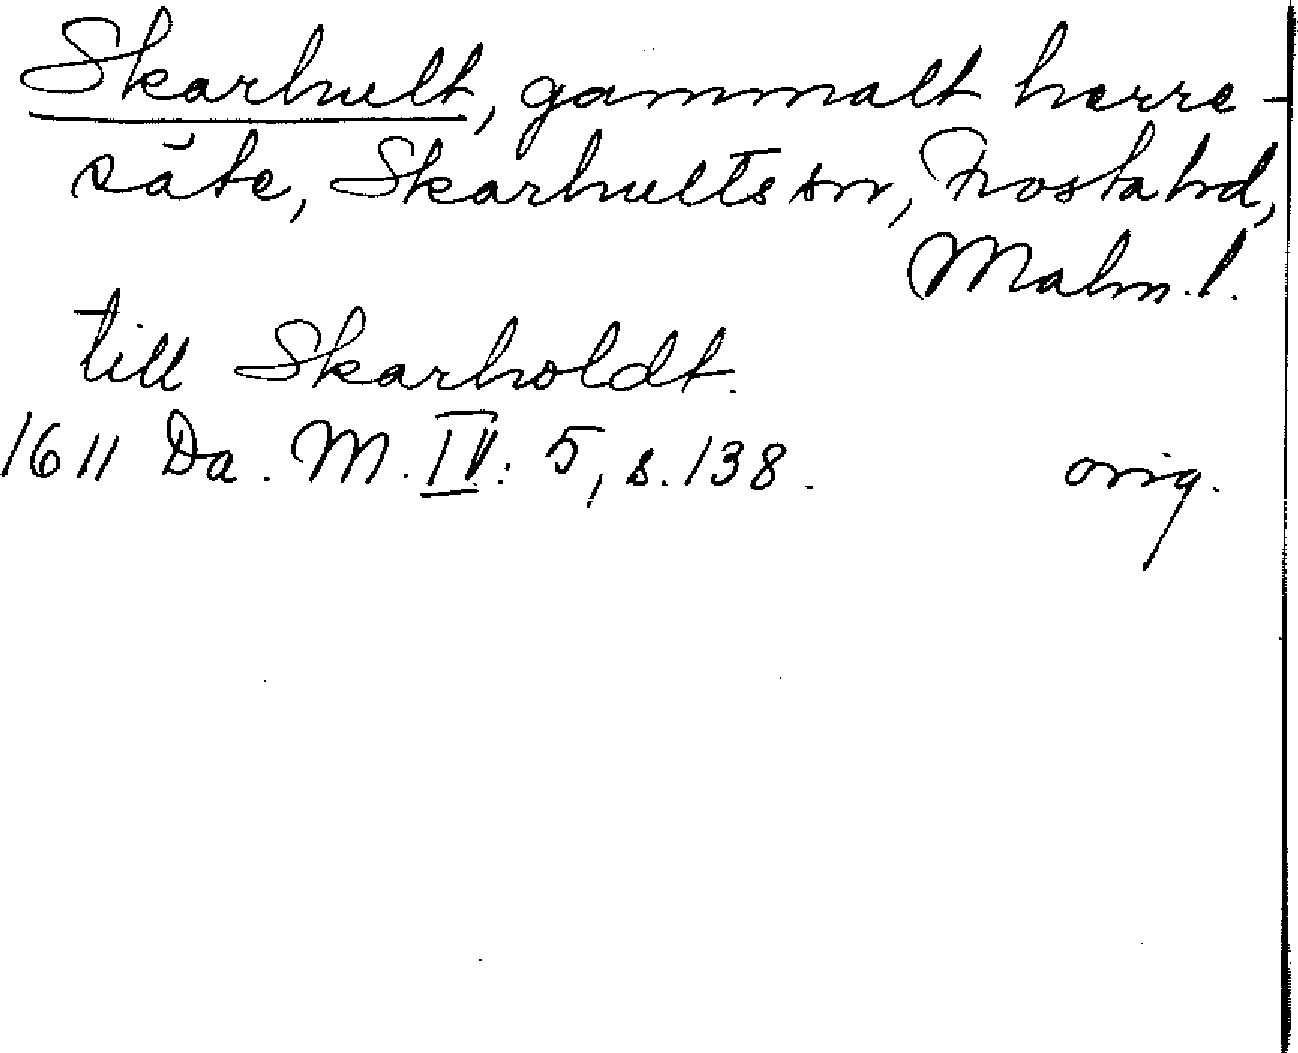 Skarhult, gammalt herre-
säte, Skarhults sn, Frosta hd,
Malm. l.
till Skarholdt.
1611 Da. M. IV: 5, s. 138. orig.